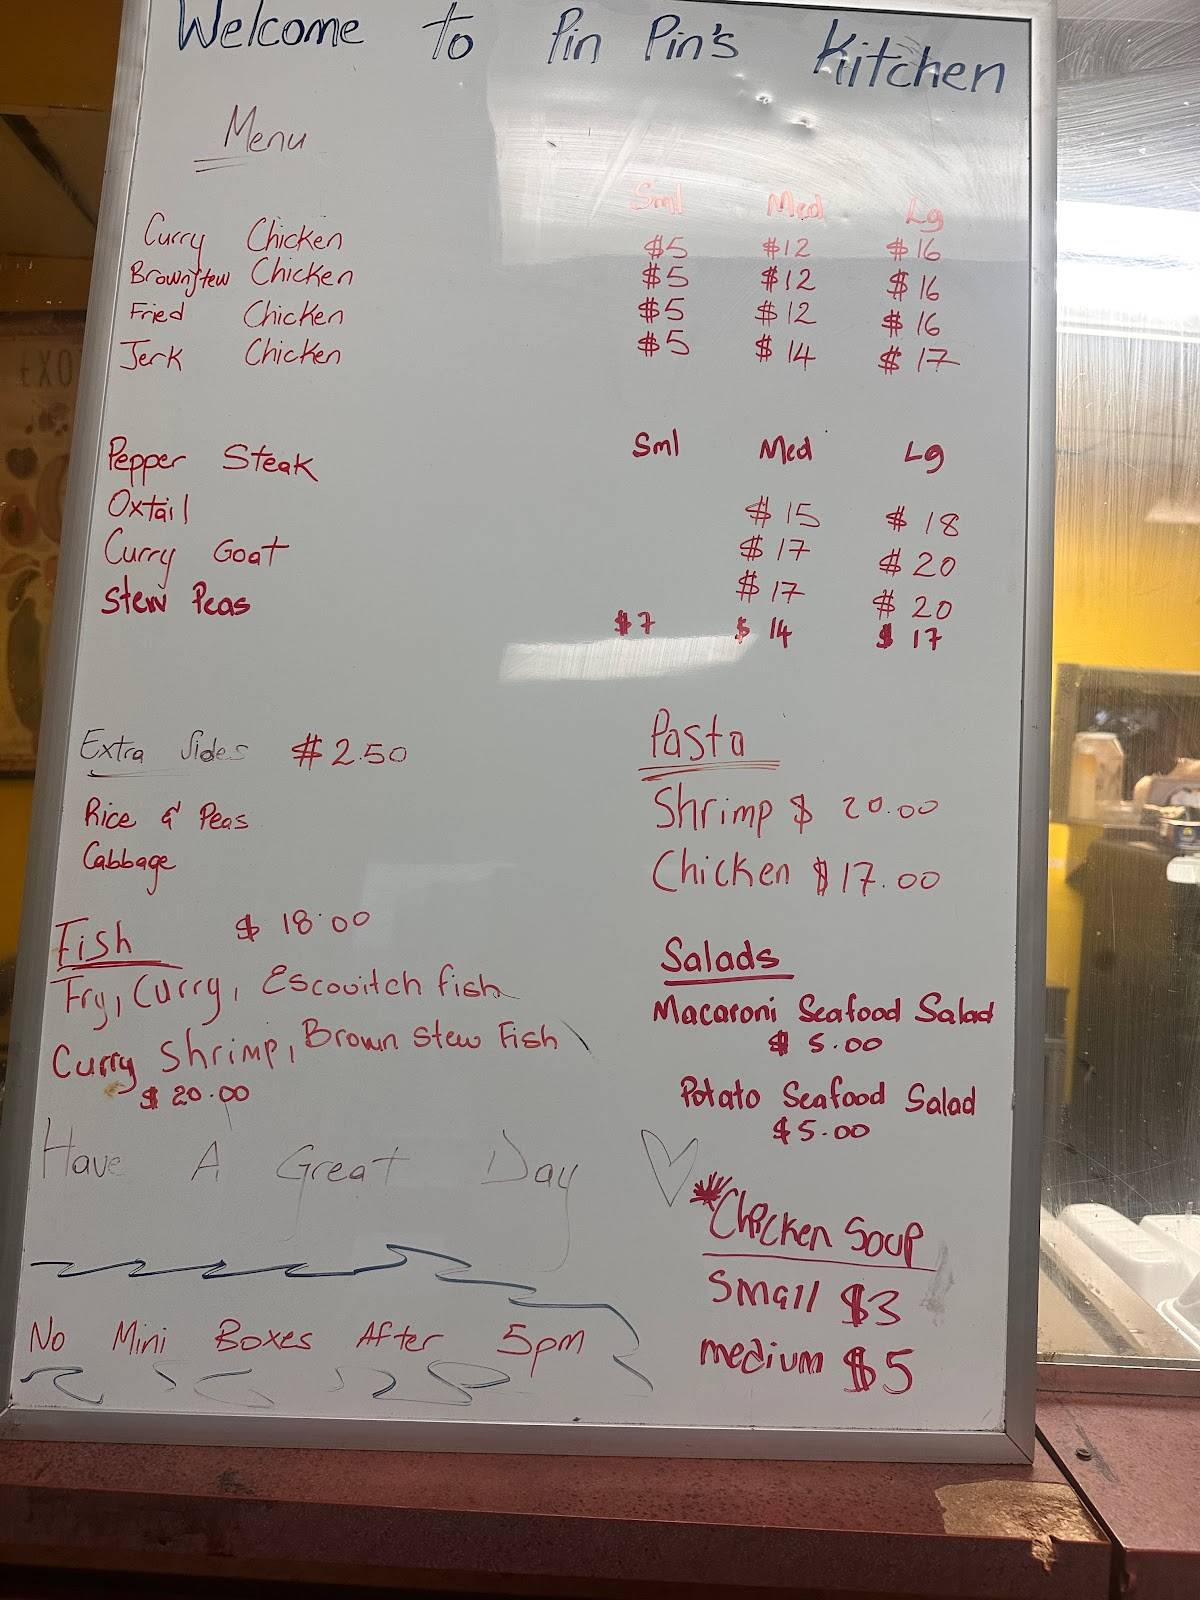 Welcome to Pin Pin's Kitchen
Menu
Sml Med Lg
Curry Chicken $5 $12 $16
Brownstew Chicken $5 $12 $16
Fried Chicken $5 $12 $16
Jerk Chicken $5 $14 $17
Sml Med Lg
Pepper Steak $15 $18
Oxtail $17 $20
Curry Goat $17 $20
Stew Peas $7 $14 $17
Extra Sides $2.50
Rice & Peas
Cabbage
Fish $18.00
Fry, Curry, Escovitch fish
Curry Shrimp, Brown Stew Fish
$20.00
Pasta
Shrimp $20.00
Chicken $17.00
Salads
Macaroni Seafood Salad
$5.00
Potato Seafood Salad
$5.00
Have A Great Day
*Chicken Soup
Small $3
medium $5
No Mini Boxes After 5pm